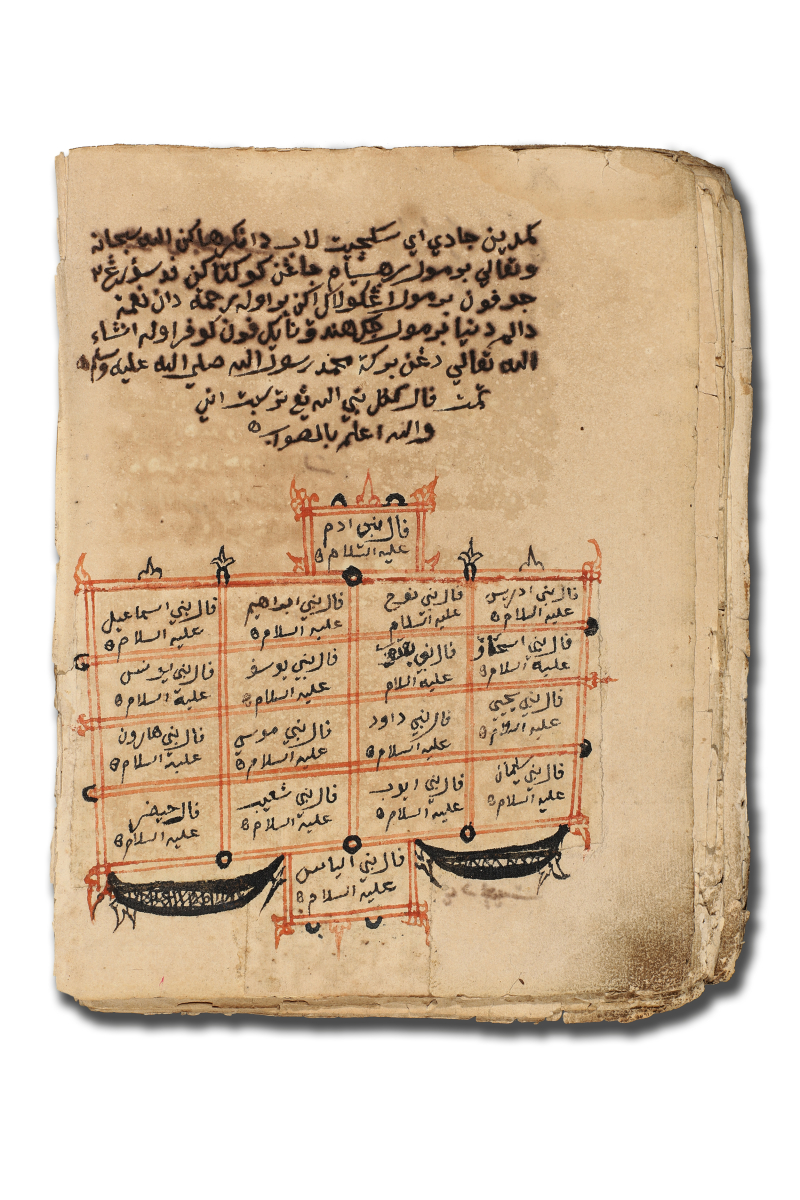 كمدين جادي اي دانكرهاكن الله سبحانه
وتعالي برمول جاغن كوكتاكن فد سؤرڠ٢
جوفون برمول اكن براوله رحمة دان نعمة
دالم دنيا برمول جك هندق نايك فون كوفراوله انشاء
الله تعالي دڠن بركة محمد رسول الله صلي الله عليه وسلم
تمت فال سكل نبي الله يڠ ترسبت اني
والله اعلم بالصواب
فال نبي ادم
عليه السلام
فال نبي ادريس
عليه السلام
فال نبي نوح
عليه السلام
فال نبي ابراهيم
عليه السلام
فال نبي اسماعيل
عليه السلام
فال نبي اسحاق
عليه السلام
فال نبي يعقوب
عليه السلام
فال نبي يوسف
عليه السلام
فال نبي يونس
عليه السلام
فال نبي يحيي
عليه السلام
فال نبي داود
عليه السلام
فال نبي موسي
عليه السلام
فال نبي هارون
عليه السلام
فال نبي سليمان
عليه السلام
فال نبي ايوب
عليه السلام
فال نبي شعيب
عليه السلام
فال حيضر
عليه السلام
فال نبي الياس
عليه السلام